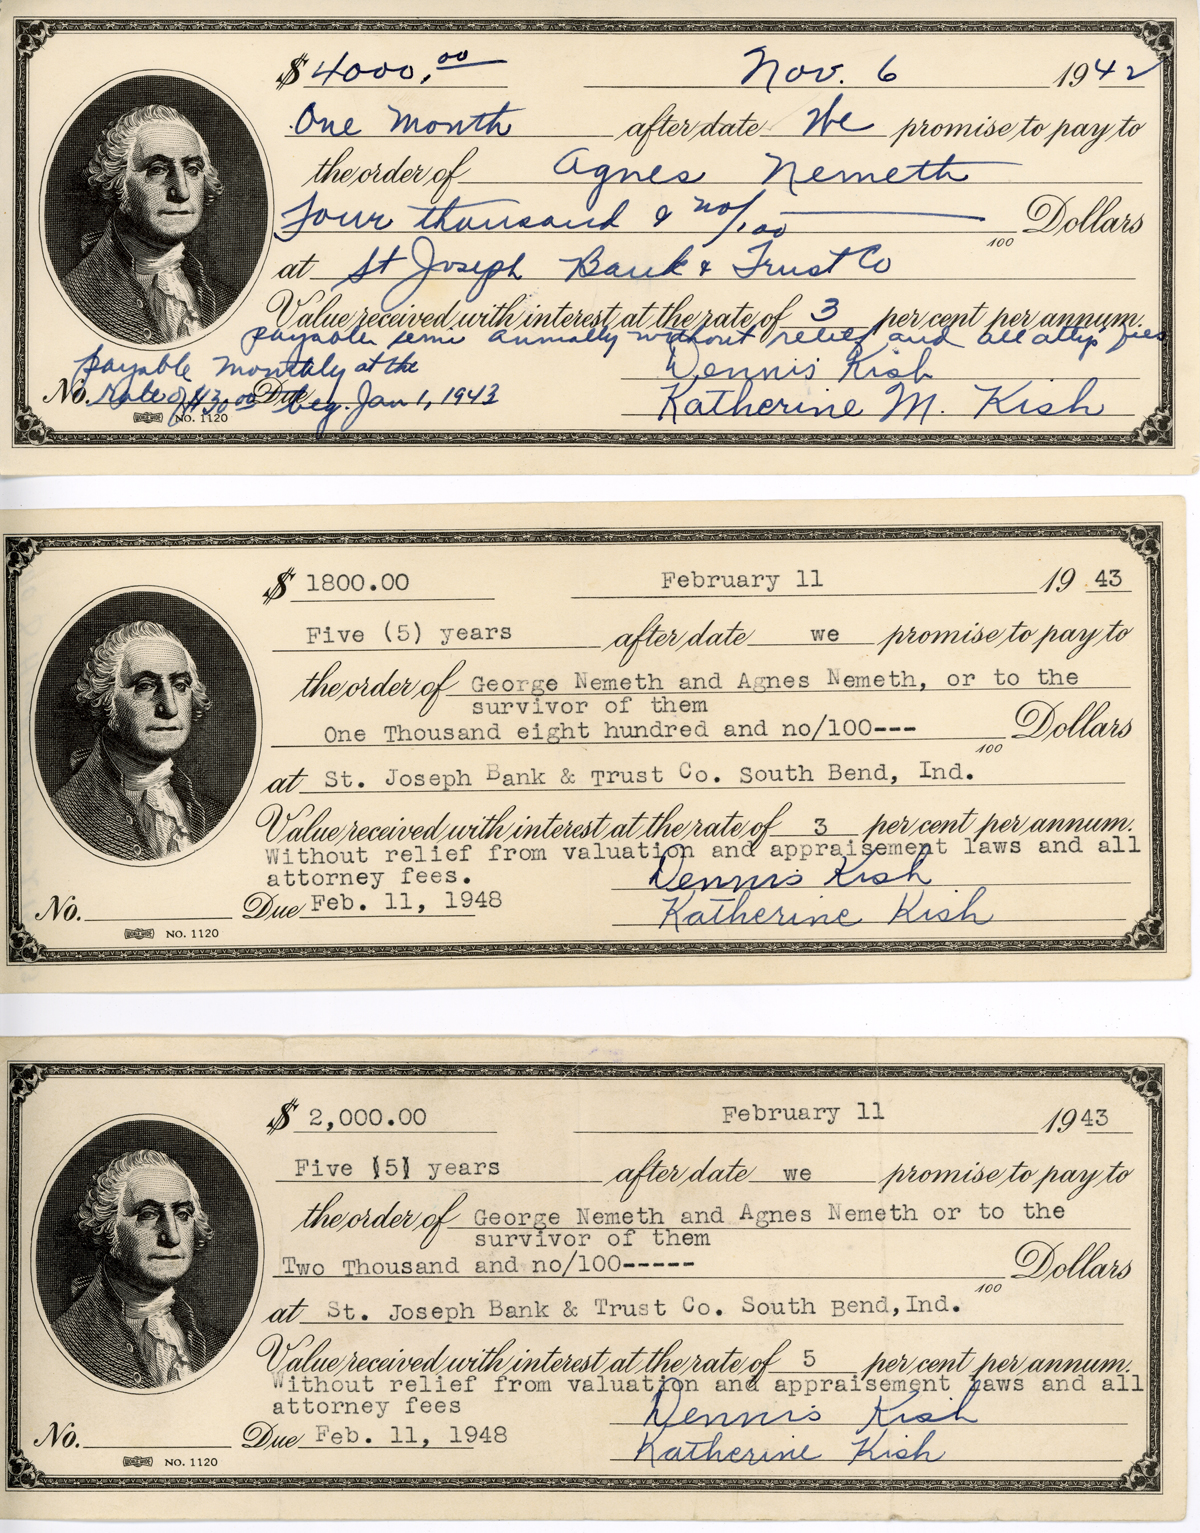 $ 4000.00 Nov. 6 1942
One Month after date We promise to pay to
the order of Agnes Nemeth
Four thousand & no/100 100 Dollars
at St Joseph Bank & Trust Co
Value received with interest at the rate of 3 per cent per annum.
payable semi annually without relief and all attys fees
payable monthly at the Dennis Kish
No. Rate of $ Due beg. Jan 1, 1943 Katherine M. Kish
No. 1120
$ 1800.00 February 11 19 43
Five (5) years after date we promise to pay to
the order of George Nemeth and Agnes Nemeth, or to the
survivor of them
One Thousand eight hundred and no/100--- 100 Dollars
at St. Joseph Bank & Trust Co. South Bend, Ind.
Value received with interest at the rate of 3 per cent per annum.
Without relief from valuation and appraisement laws and all
attorney fees. Dennis Kish
No. Due Feb. 11, 1948 Katherine Kish
NO. 1120
$ 2,000.00 February 11 1943
Five (5) years after date we promise to pay to
the order of George Nemeth and Agnes Nemeth or to the
survivor of them
Two Thousand and no/100----- 100 Dollars
at St. Joseph Bank & Trust Co. South Bend, Ind.
Value received with interest at the rate of 5 per cent per annum.
Without relief from valuation and appraisement laws and all
attorney fees Dennis Kish
No. Due Feb. 11, 1948 Katherine Kish
NO. 1120